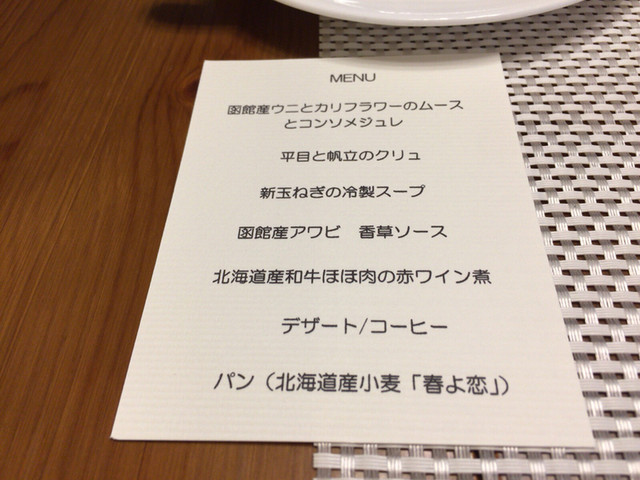 MENU
函館産ウニとカリフラワーのムース
とコンソメジュレ
平目と帆立のクリュ
新玉ねぎの冷製スープ
函館産アワビ　香草ソース
北海道産和牛ほほ肉の赤ワイン煮
デザート/コーヒー
パン（北海道産小麦「春よ恋」）